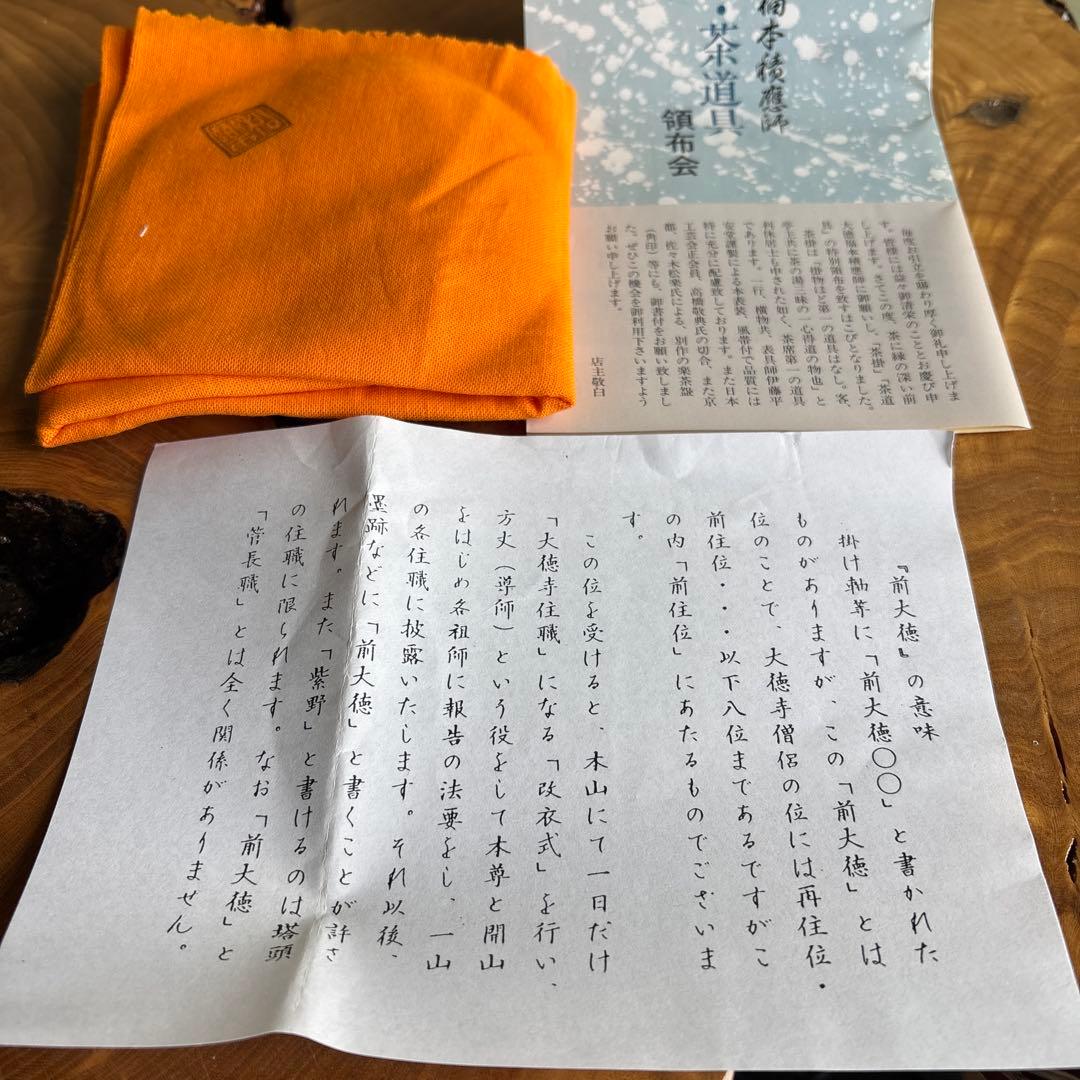 福本積應師
・茶道具
領布会
毎度お引立を賜わり厚く御礼申し上げま
す。皆様には益々御清栄のこととお慶び申
し上げます。さてこの度、茶に縁の深い前
大徳福本積應師に御願いし、「茶掛」「茶道
具」の特別領布を致すはこびとなりました。
茶掛は「掛物ほど第一の道具はなし。客、
亭主共に茶の湯三昧の一心得道の物也」と
利休居士も申された如く、茶席第一の道具
であります。一行、横物共、表具師伊藤平
安堂謹製による本表装、風帯付で品質には
特に充分に配慮致しております。また日本
工芸会正会員、高橋敬典氏の切合、また京
都、佐々木松楽氏による、別作の楽茶盌
(角印)等にも、御書付をお願い致しまし
た。ぜひこの機会を御利用下さいますよう
お願い申し上げます。
店主敬白
『前大徳』の意味
掛け軸等に「前大徳〇〇」と書かれた
ものがありますが、この「前大徳」とは
位のことで、大徳寺僧侶の位には再住位・
前住位・・以下八位まであるですがこ
の内「前住位」にあたるものでございま
す。
この位を受けると、本山にて一日だけ
「大徳寺住職」になる「改衣式」を行い、
方丈(導師)という役をして本尊と開山
をはじめ各祖師に報告の法要をし、一山
の各住職に披露いたします。それ以後、
墨跡などに「前大徳」と書くことが許さ
れます。また「紫野」と書けるのは塔頭
の住職に限られます。なお「前大徳」と
「管長職」とは全く関係がありません。